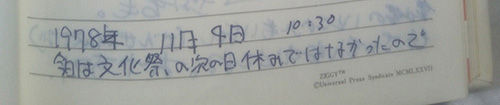 1978年 11月 4日 10:30
今日は文化祭、の次の日休みではなかったので
ZIGGY™
©Universal Press Syndicate MCMLXXVII